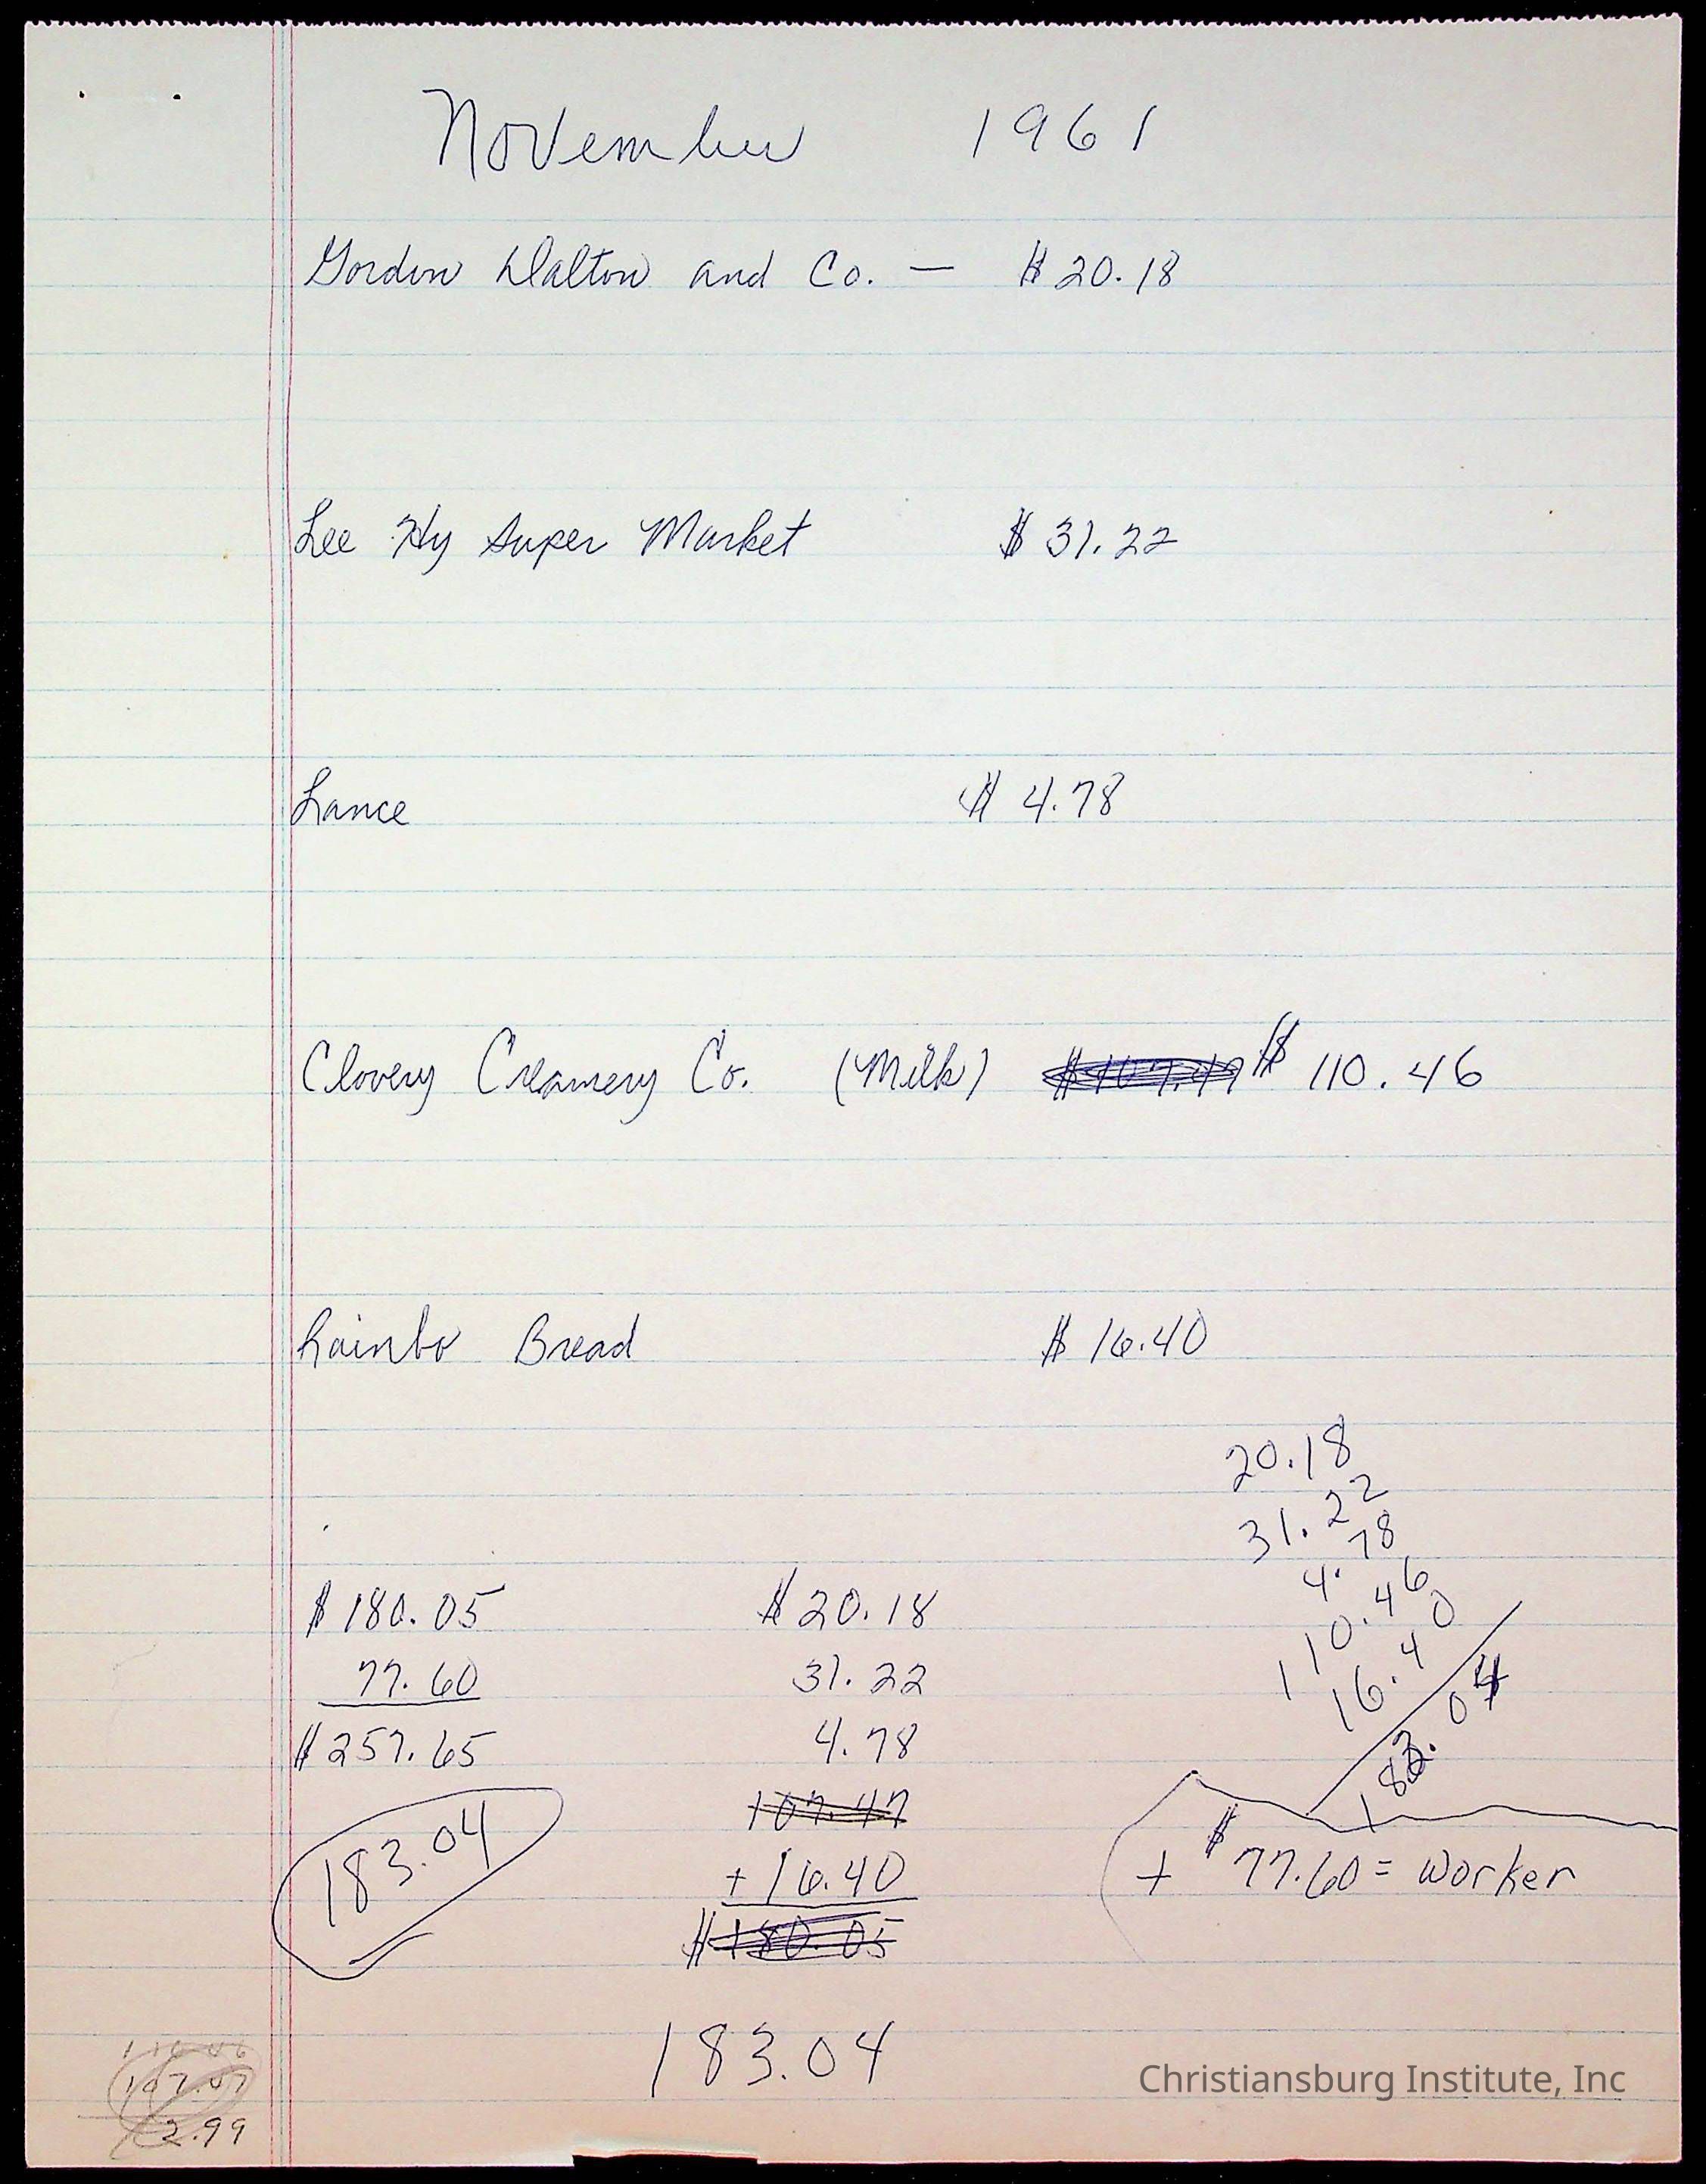 November 1961
Gordon Dalton and Co. — $ 20.18
Lee Hy Super Market $ 31.22
Lance $ 4.78
Clovery Creamery Co. (Milk) $107.47 $ 110.46
Rainbo Bread $ 16.40
20.18
31.22
4.78
110.46
16.40
183.04
$ 180.05
77.60
$ 257.65
183.04
$ 20.18
31.22
4.78
107.47
+ 16.40
$ 180.05
183.04
+ $ 77.60 = Worker
107.47
2.99
Christiansburg Institute, Inc